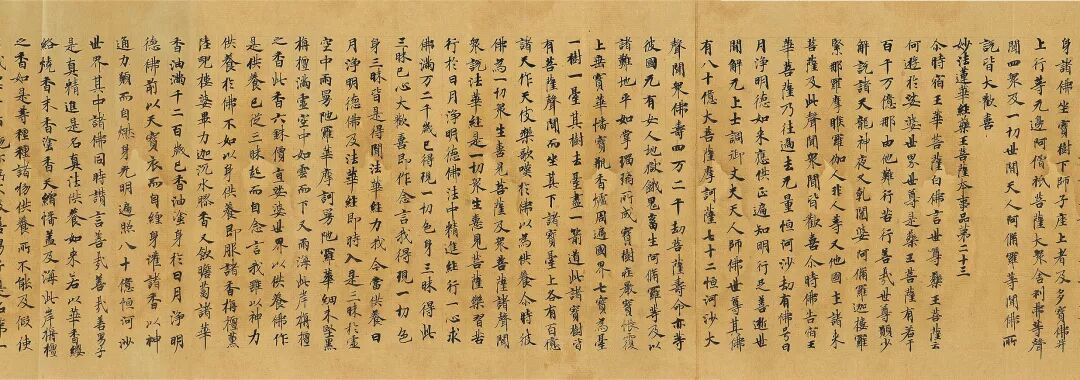 身諸佛坐寶樹下師子座上者及多寶佛并
上行等无邊阿僧祇菩薩大衆舍利弗等聲
聞四衆及一切世間天人阿脩羅等聞佛所
說皆大歡喜
妙法蓮華經藥王菩薩本事品第二十三
尒時宿王華菩薩白佛言世尊藥王菩薩云
何遊於娑婆世界世尊是藥王菩薩有若干
百千万億那由他難行苦行善哉世尊願少
解說諸天龍神夜叉乾闥婆阿脩羅迦樓羅
緊那羅摩睺羅伽人非人等又他國土諸來
菩薩及此聲聞衆聞皆歡喜尒時佛告宿王
華菩薩乃往過去无量恒河沙劫有佛号曰
月淨明德如來應供正遍知明行足善逝世
間解无上士調御丈夫天人師佛世尊其佛
有八十億大菩薩摩訶薩七十二恒河沙大
聲聞衆佛壽四万二千劫菩薩壽命亦等
彼國无有女人地獄餓鬼畜生阿脩羅等及以
諸難地平如掌瑠璃所成寶樹莊嚴寶帳覆
上垂寶華幡寶瓶香爐周遍國界七寶為臺
一樹一臺其樹去臺盡一箭道此諸寶樹皆
有菩薩聲聞而坐其下諸寶臺上各有百億
諸天作天伎樂歌嘆於佛以為供養尒時彼
佛為一切衆生憙見菩薩及衆菩薩諸聲聞
衆說法華經是一切衆生憙見菩薩樂習苦
行於日月淨明德佛法中精進經行一心求
佛滿万二千歲已得現一切色身三昧得此
三昧已心大歡喜即作念言我得現一切色
身三昧皆是得聞法華經力我今當供養日
月淨明德佛及法華經即時入是三昧於虛
空中雨曼陀羅華摩訶曼陀羅華細末堅黑
栴檀滿虛空中如雲而下又雨海此岸栴檀
之香此香六銖價直娑婆世界以供養佛作
是供養已從三昧起而自念言我雖以神力
供養於佛不如以身供養即服諸香栴檀薰
陸兜樓婆畢力迦沉水膠香又飲瞻蔔諸華
香油滿千二百歲已香油塗身於日月淨明
德佛前以天寶衣而自纏身灌諸香油以神
通力願而自燃身光明遍照八十億恒河沙
世界其中諸佛同時讚言善哉善哉善男子
是真精進是名真法供養如來若以華香瓔
珞燒香末香塗香天繒幡蓋及海此岸栴檀
之香如是等種種諸物供養所不能及假使